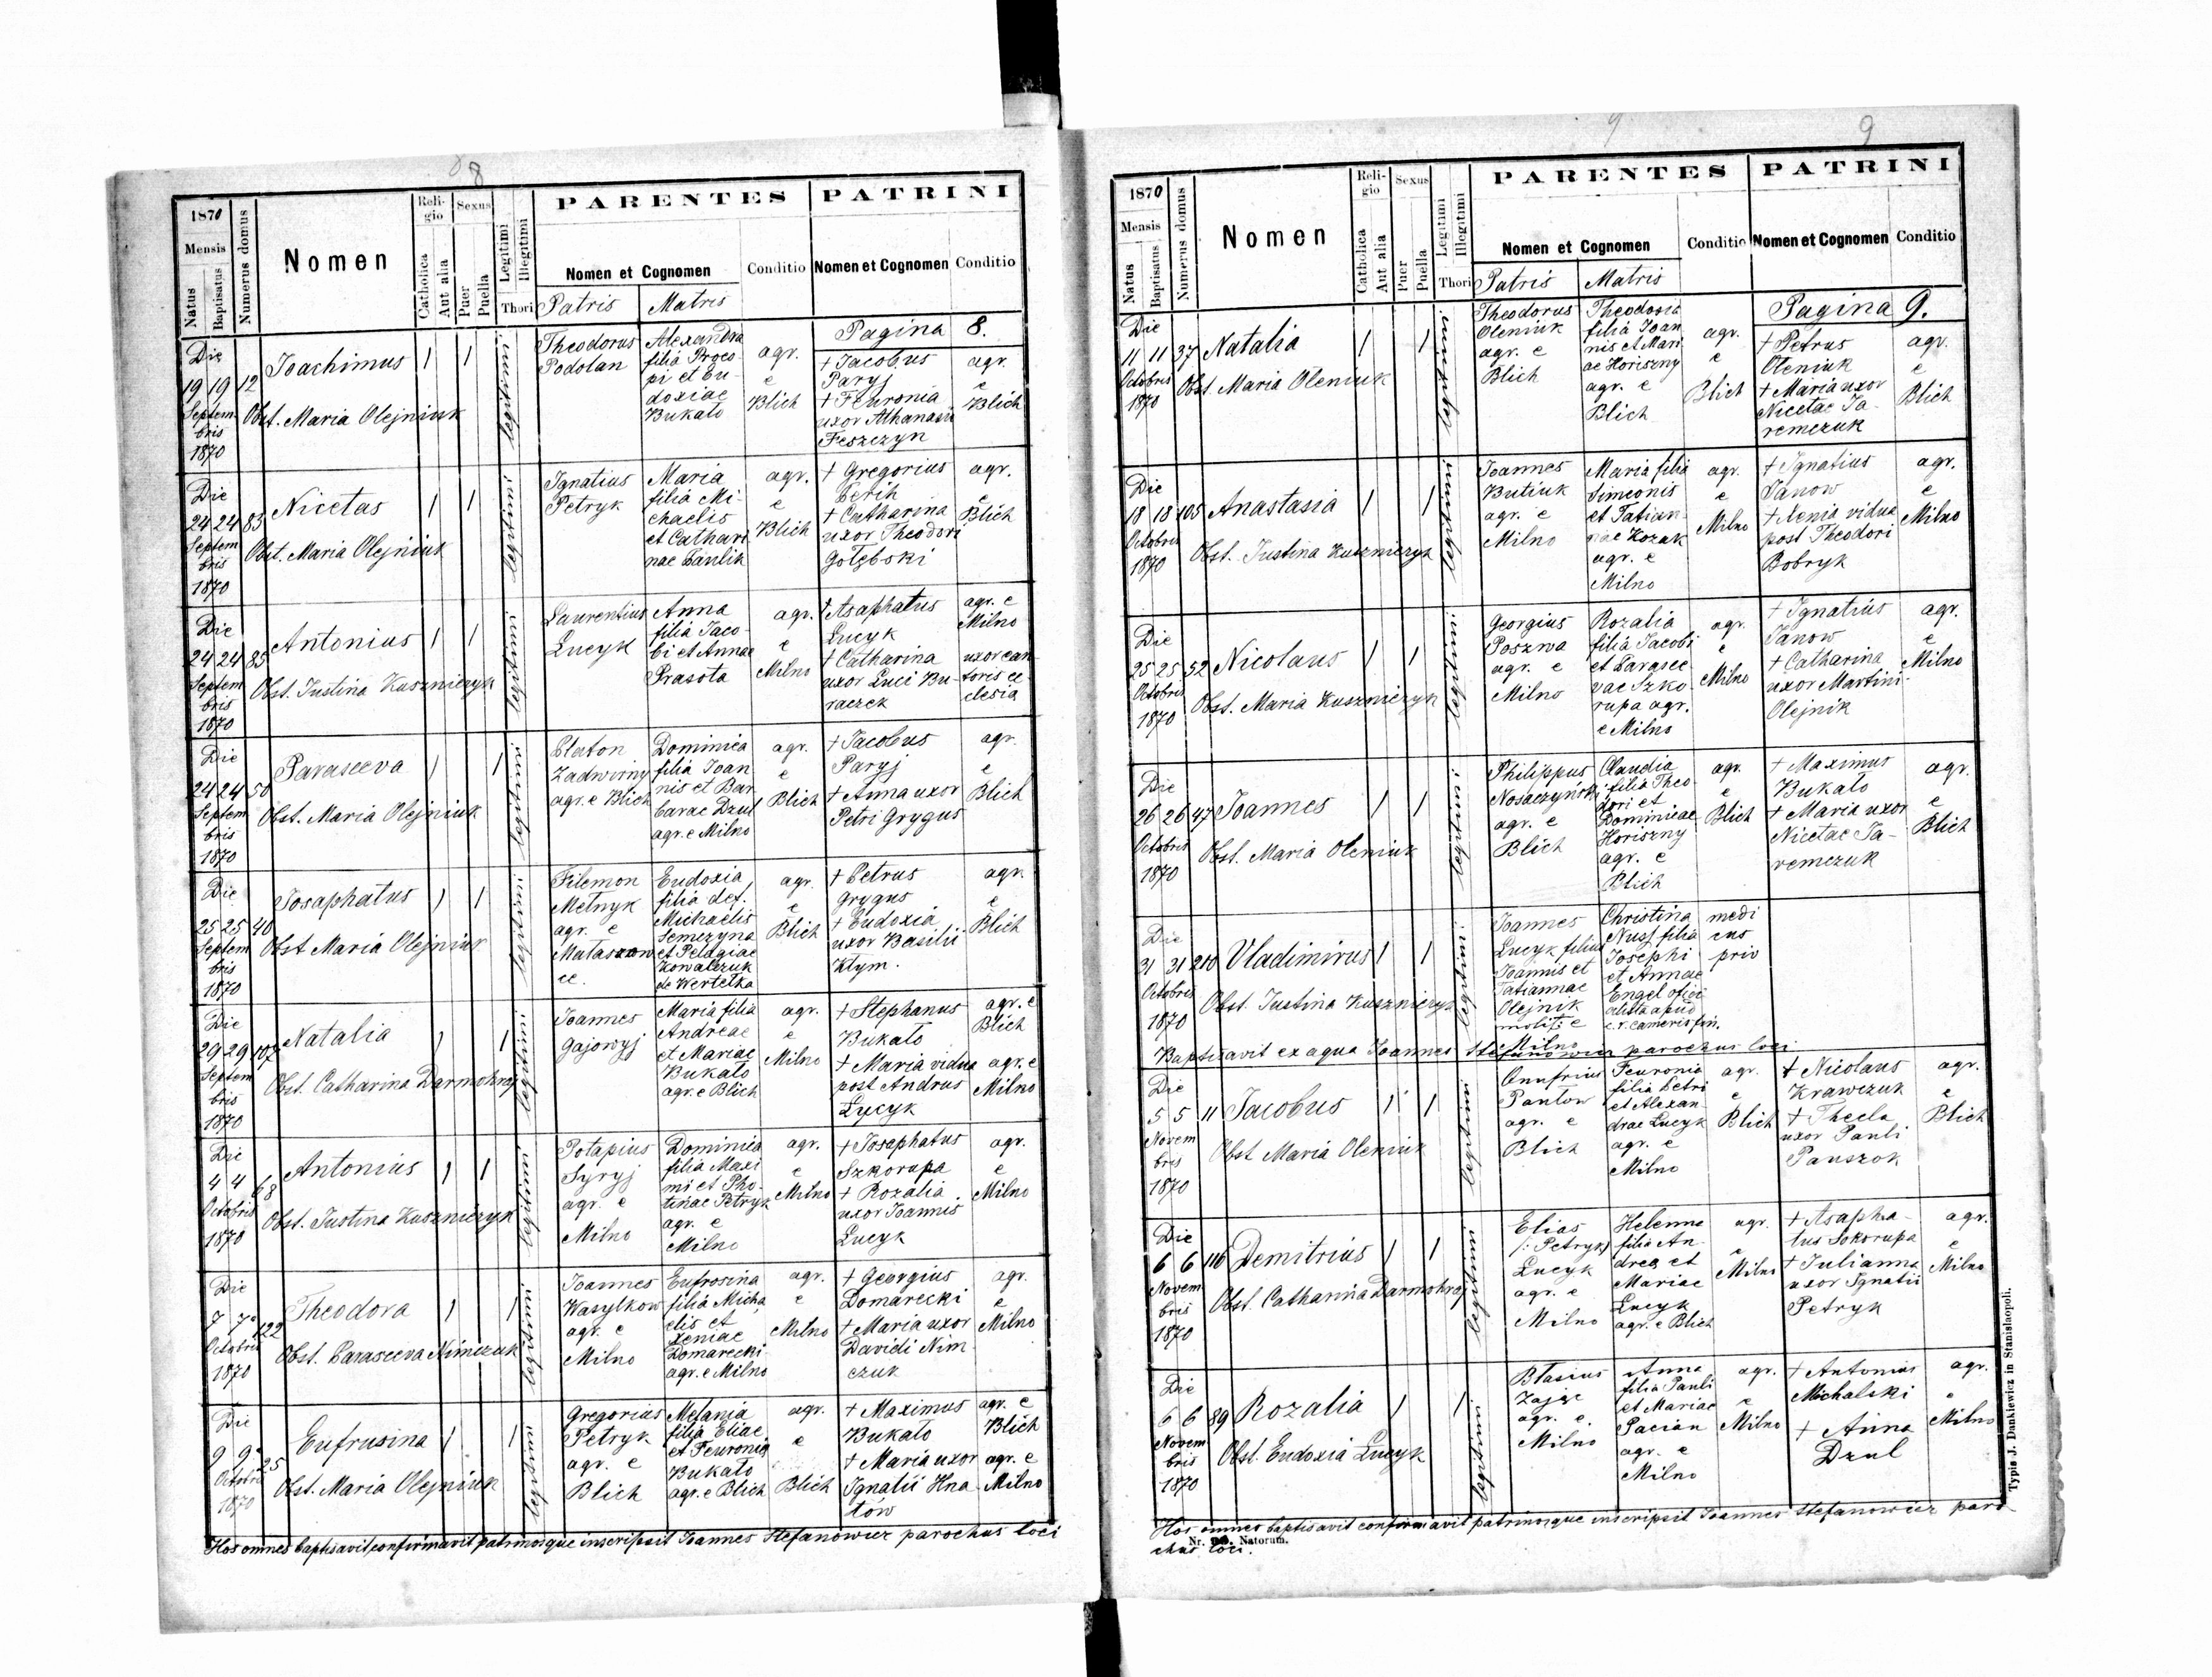 8
1870
Mensis
Natus
Baptisatus
Numerus domus
Nomen
Reli-
gio
Catholica
Aut alia
Sexus
Puer
Puella
Legitimi
Illegitimi
Thori
PARENTES
Nomen et Cognomen
Patris Matris
Conditio
PATRINI
Nomen et Cognomen
Conditio
Pagina 8.
Die
19 19 12
Septem
bris
1870
Joachimus 1 1
Obst. Maria Olejniuk
legitimi
Theodorus
Podolan
Alexandra
filia Proco-
pi et Eu-
doxiae
Bukato
agr.
e
Blich
+ Jacobus
Paryj
+ Feuronia
uxor Athanasii
Feszczyn
agr.
e
Blich
Die
24 24 83
Septem
bris
1870
Nicetas 1 1
Obst. Maria Olejniuk
legitimi
Ignatius
Petryk
Maria
filia Mi-
chaelis
et Cathari
nae Pawlik
agr.
e
Blich
+ Gregorius
+ Catharina
uxor Theodori
Gołębski
agr.
e
Blich
Die
24 24 85
Septem
bris
1870
Antonius 1 1
Obst. Justina Kuszniczyk
legitimi
Laurentius
Lucyk
Anna
filia Jaco-
bi et Annae
Prasota
agr.
e
Milno
+ Asaphatus
Lucyk
+ Catharina
uxor Luci Bu-
raczek
agr. e
Milno
uxor can
toris ec
clesia
Die
24 24 50
Septem
bris
1870
Parasceva 1 1
Obst. Maria Olejniuk
legitimi
Platon
Zadwirny
agr. e Blich
Dominica
filia Joan
nis et Bar
barae Dzul
agr. e Milno
agr.
e
Blich
+ Jacobus
Paryj
+ Anna uxor
Petri Grygus
agr.
e
Blich
Die
25 25 40
Septem
bris
1870
Josaphatus 1 1
Obst Maria Olejniuk
legitimi
Filemon
Melnyk
agr. e
Eudoxia
filia def.
Michaelis
Semczyna
et Pelagiae
Kowalczuk
de Wertelka
agr.
e
Blich
+ Petrus
Grygus
+ Eudoxia
uxor Basilii
Klym.
agr.
e
Blich
Die
29 29 107
Septem
bris
1870
Natalia 1 1
Obst. Catharina Darmohraj
legitimi
Joannes
Gajowyj
Maria filia
Andreae
et Mariae
Bukato
agr. e Blich
agr.
e
Milno
+ Stephanus
Bukato
+ Maria vidua
post Andrus
Lycyk
agr. e
Blich
agr. e
Milno
Die
4 4 68
Octobris
1870
Antonius 1 1
Obst. Justina Kuszniczyk
legitimi
Potapius
Syryj
agr. e
Milno
Dominica
filia Maxi
mi et Pho-
tinae Petryk
agr. e
Milno
agr.
e
Milno
+ Josaphatus
Szkorupa
+ Rozalia
uxor Joannis
Lucyk
agr.
e
Milno
Die
7 7 122
Octobris
1870
Theodora 1 1
Obst. Parasceva Nimczuk
legitimi
Joannes
Wasylkow
agr. e
Milno
Eufrosina
filia Micha
elis et
Xeniae
Domarecki
agr. e Milno
agr.
e
Milno
+ Georgius
Domarecki
+ Maria uxor
Davidi Nim
czuk
agr.
e
Milno
Die
9 9 25
Octobris
1870
Eufrusina 1 1
Obst. Maria Olejniuk
legitimi
Gregorius
Petryk
agr. e
Blich
Melania
filia Eliae
et Feuronia
Bukato
agr. e Blich
agr.
e
Blich
+ Maximus
Bukato
+ Maria uxor
Ignatii Hna
tów
agr. e
Blich
agr. e
Milno
Hos omnes baptisavit confirmavit patrinosque inscripsit Joannes Stefanowicz parochus loci
9
9
1870
Mensis
Natus
Baptisatus
Numerus domus
Nomen
Reli-
gio
Catholica
Aut alia
Sexus
Puer
Puella
Legitimi
Illegitimi
Thori
PARENTES
Nomen et Cognomen
Patris Matris
Conditio
PATRINI
Nomen et Cognomen
Conditio
Pagina 9.
Die
11 11 37
Octobris
1870
Natalia 1 1
Obst. Maria Oleniuk
legitimi
Theodorus
Oleniuk
agr. e
Blich
Theodosia
filia Joan
nis et Mari
ae Horiszny
agr. e
Blich
agr.
e
Blich
+ Petrus
Oleniuk
+ Maria uxor
Nicetae Ja-
remczuk
agr.
e
Blich
Die
18 18 105
Octobris
1870
Anastasia 1 1
Obst. Justina Kuszniczyk
legitimi
Joannes
Butiuk
agr. e
Milno
Maria filia
Simeonis
et Tatian
nae Kozak
agr. e
Milno
agr.
e
Milno
+ Ignatius
Janow
+ Xenia vidua
post Theodori
Bobryk
agr.
e
Milno
Die
25 25 52
Octobris
1870
Nicolaus 1 1
Obst. Maria Kuszniczyk
legitimi
Georgius
Poszwa
agr. e
Milno
Rozalia
filia Jacobi
et Parasce
vae Szko-
rupa agr.
e Milno
agr.
e
Milno
+ Ignatius
Janow
+ Catharina
uxor Martini
Olejnik
agr.
e
Milno
Die
26 26 47
Octobris
1870
Joannes 1 1
Obst. Maria Oleniuk
legitimi
Philippus
Nosaczyński
agr. e
Blich
Claudia
filia Theo
dori et
Dominicae
Horiszny
agr. e
Blich
agr.
e
Blich
+ Maximus
Bukato
+ Maria uxor
Nicetae Ja-
remczuk
agr.
e
Blich
Die
31 31 210
Octobris
1870
Vladimirus 1 1
Obst. Justina Kuszniczyk
legitimi
Joannes
Lucyk filius
Joannis et
Tatiannae
Olejnik
Milno
Christina
Nuss filia
Josephi
et Annae
Engel
c. r. cameris fin.
medi
cus
priv
Baptisavit ex aqua Joannes Stefanowicz parochus loci
Die
5 5 11
Novem
bris
1870
Jacobus 1 1
Obst Maria Oleniuk
legitimi
Onufrius
Panton
agr. e
Blich
Feuronia
filia Petri
et Alexan-
drae Lucyk
agr. e
Milno
agr.
e
Blich
+ Nicolaus
Krawczuk
+ Thecla
uxor Pauli
Pauszok
agr.
e
Blich
Die
6 6 116
Novem
bris
1870
Demitrius 1 1
Obst. Catharina Darmohraj
legitimi
Elias
(: Petryk)
Lucyk
agr. e
Milno
Helenna
filia An-
drea et
Mariae
Lucyk
agr. e Blich
agr.
e
Milno
+ Asapha-
tus Sokorupa
+ Julianna
uxor Ignatii
Petryk
agr.
e
Milno
Die
6 6 89
Novem
bris
1870
Rozalia 1 1
Obst. Eudoxia Lucyk
legitimi
Blasius
Zając
agr. e.
Milno
Anna
filia Pauli
et Mariae
Pacian
agr. e
Milno
agr.
e
Milno
+ Antonius
Michalski
+ Anna
Dzul
agr.
e
Milno
Hos omnes baptisavit confirmavit patrinosque inscripsit Joannes Stefanowicz paro
chus loci.
Nr. Natorum.
Typis J. Dankiewicz in Stanislaopoli.